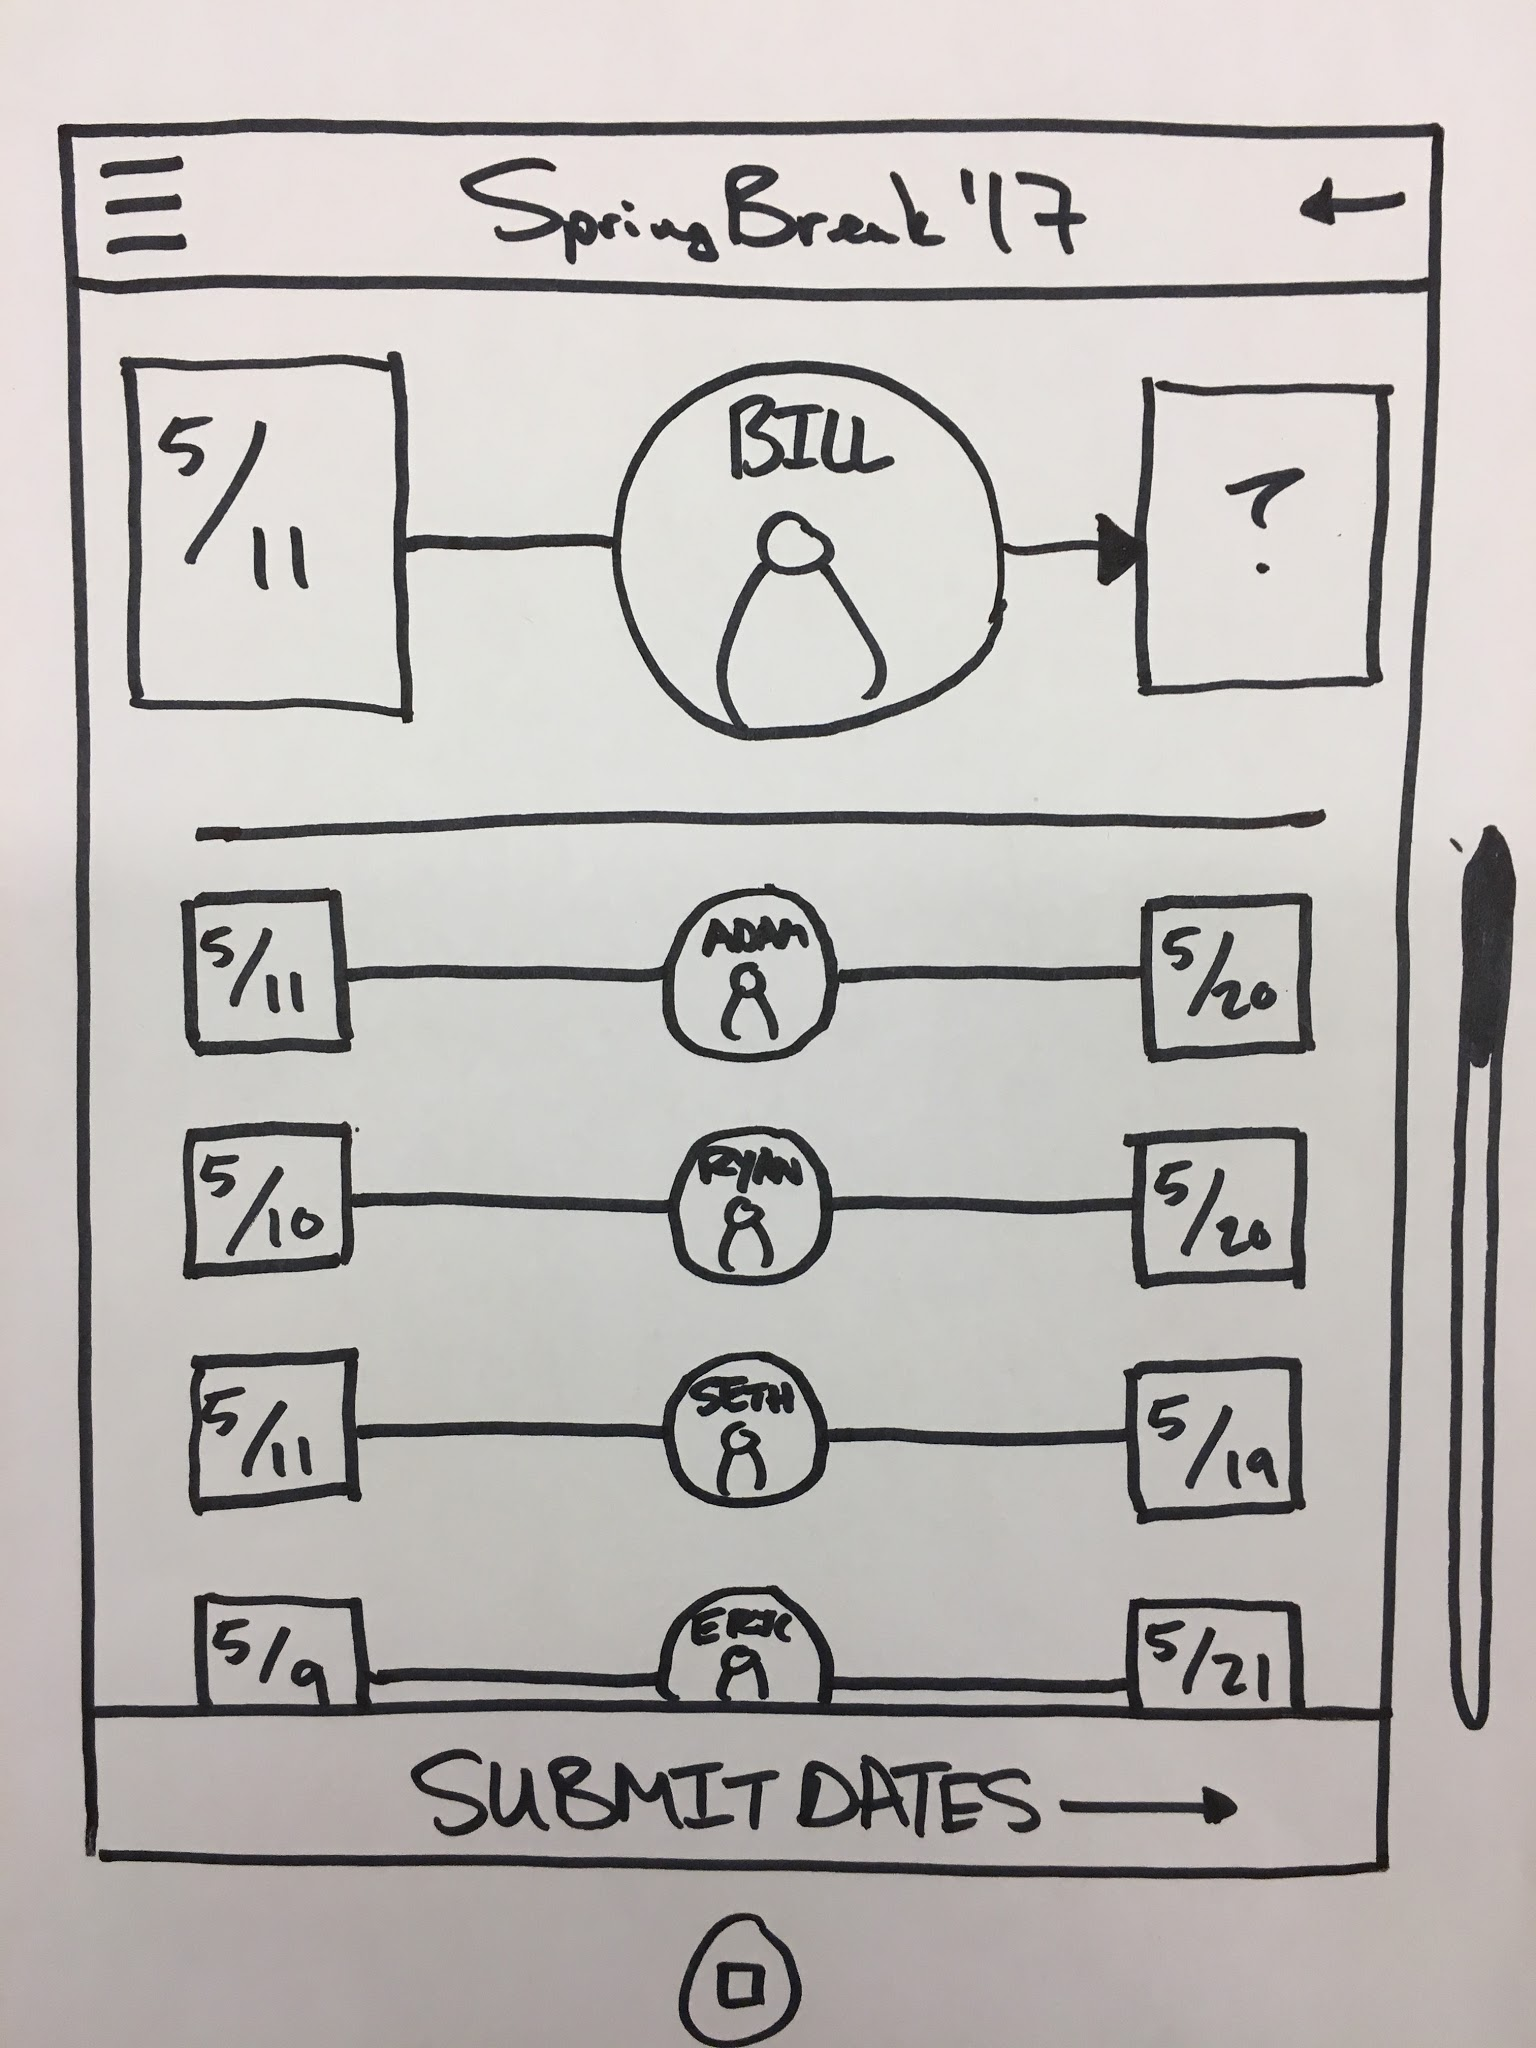 Spring Break '17
5/11 BILL ?
5/11 ADAM 5/20
5/10 RYAN 5/20
5/11 SETH 5/19
5/9 ERIC 5/21
SUBMIT DATES